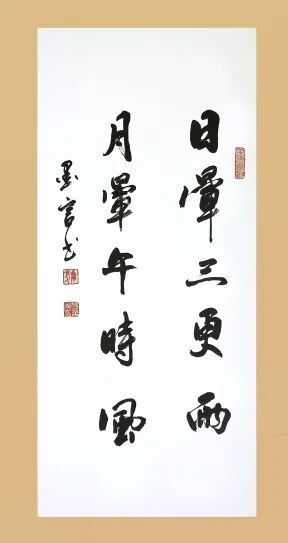 日暈三更雨
月暈午時風
墨言书